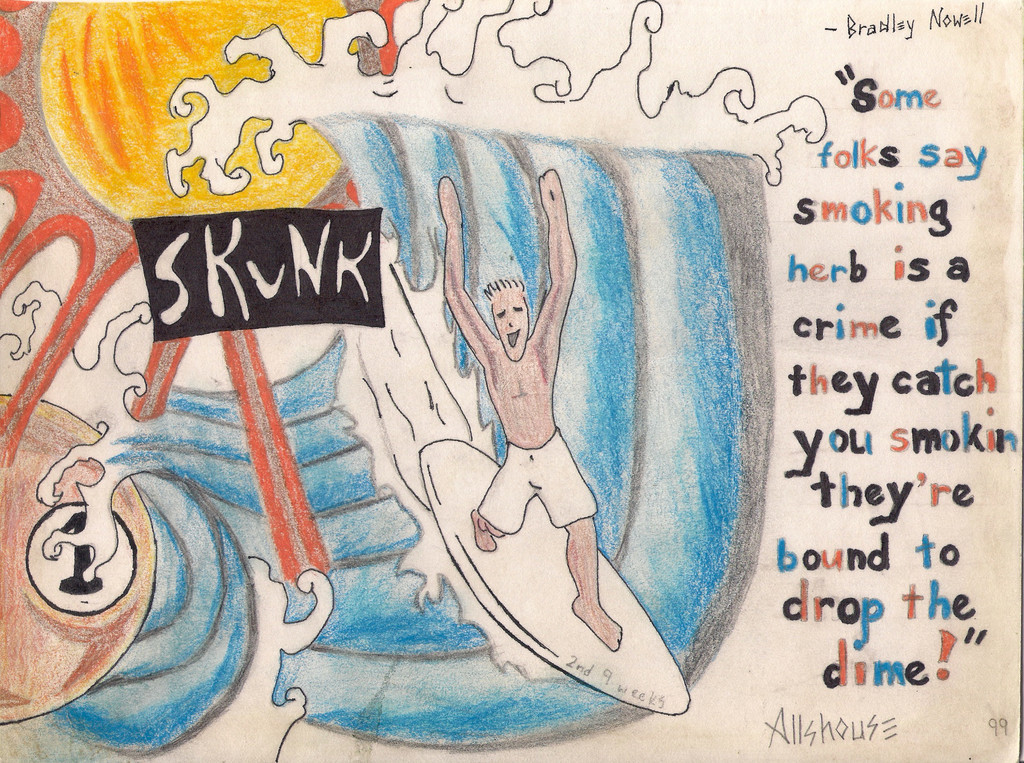 - Bradley Nowell
"Some
folks say
smoking
herb is a
crime if
they catch
you smokin
they're
bound to
drop the
dime!"
SKUNK
1
2nd 9 weeks
Allshouse
99